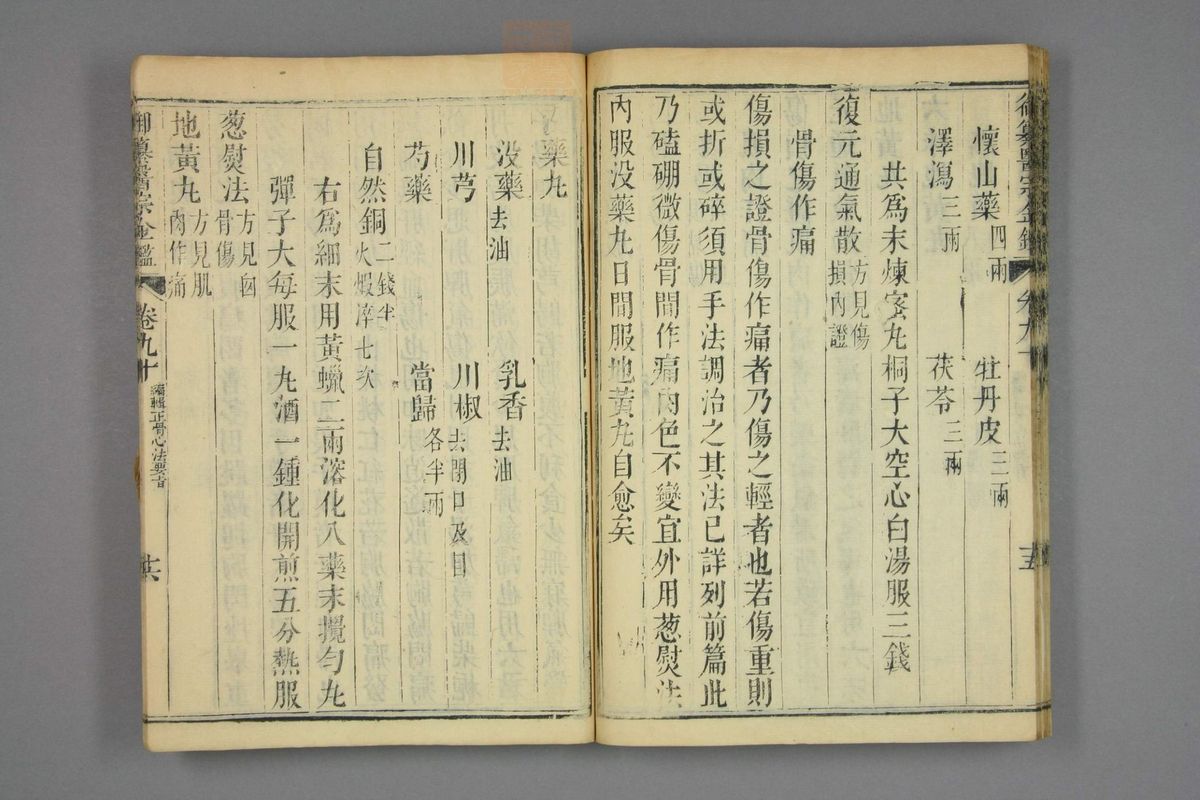 御纂醫宗金鑑 卷九十 十五
懷山藥四兩 牡丹皮三兩
澤瀉三兩 茯苓三兩
共爲末煉蜜丸桐子大空心白湯服三錢
復元通氣散方見傷損內證
骨傷作痛
傷損之證骨傷作痛者乃傷之輕者也若傷重則
或折或碎須用手法調治之其法已詳列前篇此
乃磕硼微傷骨間作痛肉色不變宜外用葱熨法
內服没藥丸日間服地黃丸自愈矣
藥丸
没藥去油 乳香去油
川芎 川椒去閉口及目
芍藥 當歸各半兩
自然銅二錢半火煅淬七次
右爲細末用黃蠟二兩溶化入藥末攪匀丸
彈子大每服一丸酒一鍾化開煎五分熱服
葱熨法方見囟骨傷
地黃丸方見肌肉作痛
御纂醫宗金鑑 卷九十 編輯正骨心法要旨 十六